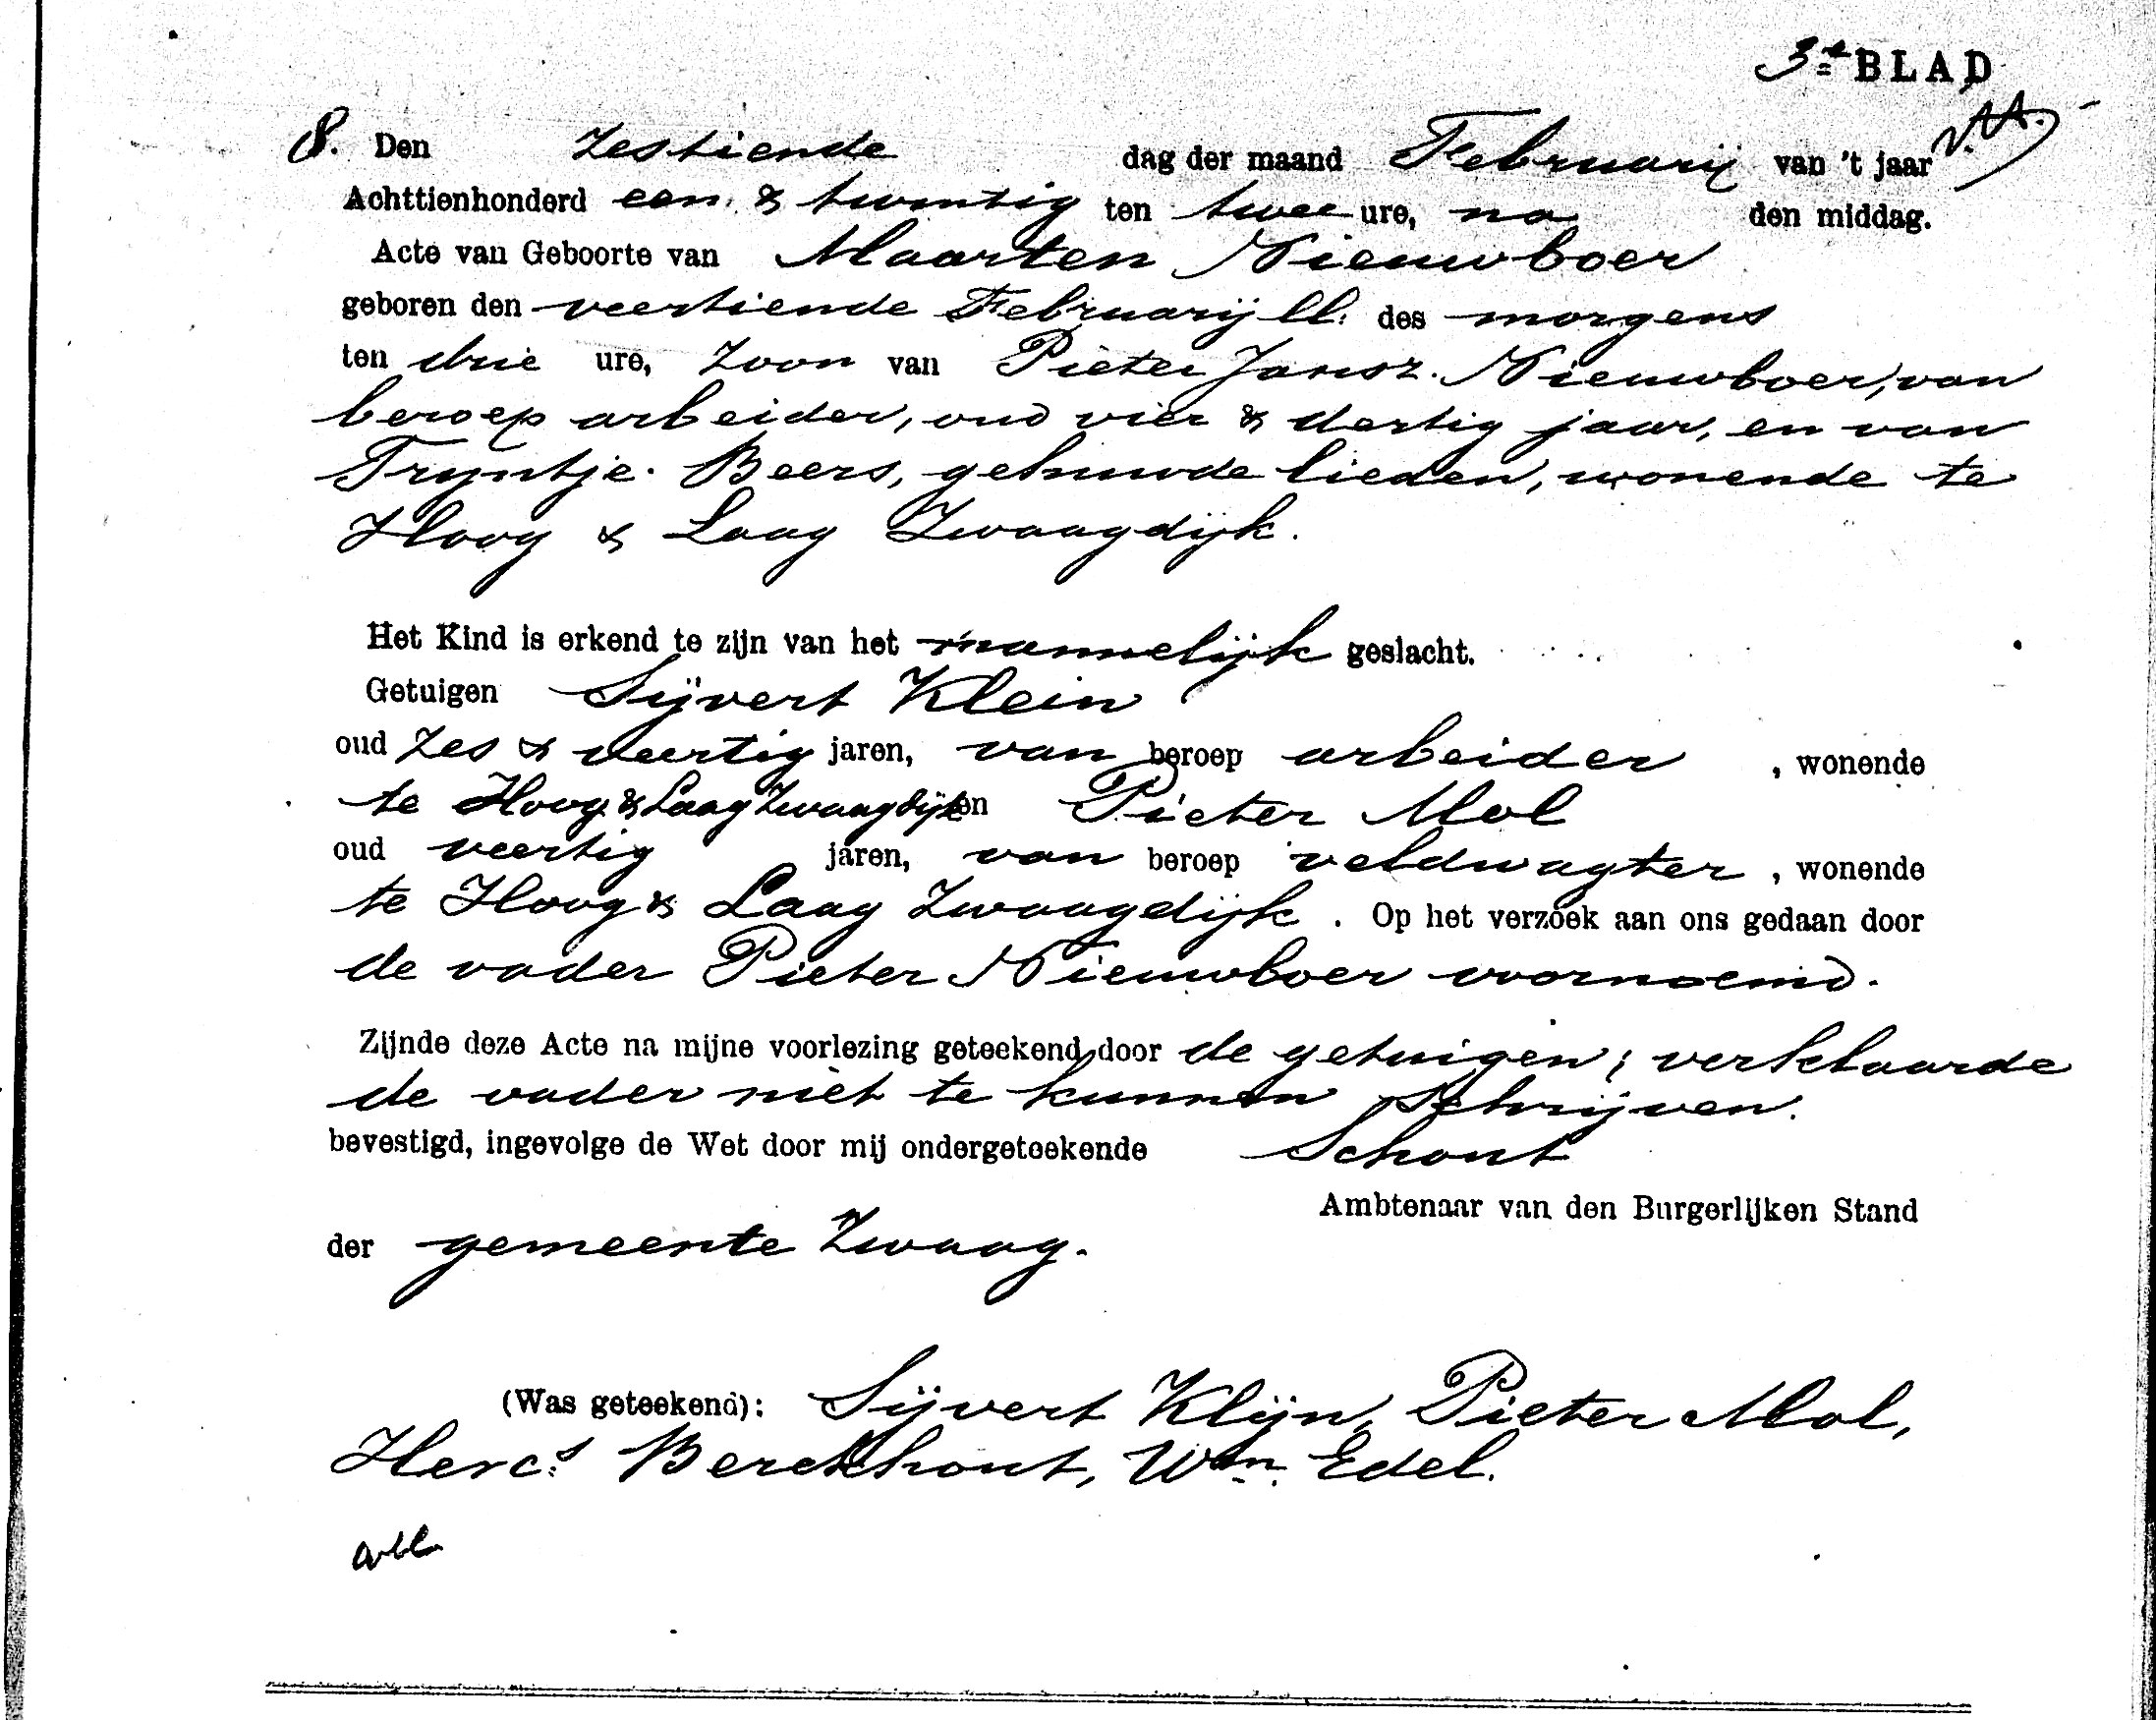 3e BLAD
8. Den zestiende dag der maand Februarij van 't jaar
Achttienhonderd een & twintig ten twee ure, na den middag.
Acte van Geboorte van Maarten Nieuwboer
geboren den veertiende Februarij ll. des morgens
ten drie ure, zoon van Pieter Jansz. Nieuwboer, van
beroep arbeider, oud vier & dertig jaar, en van
Tryntje Beers, gehuwde lieden, wonende te
Hoog & Laag Zwaagdijk.
Het Kind is erkend te zijn van het mannelijk geslacht.
Getuigen Sijvert Klein
oud zes & veertig jaren, van beroep arbeider, wonende
te Hoog & Laag Zwaagdijk en Pieter Mol
oud veertig jaren, van beroep veldwagter, wonende
te Hoog & Laag Zwaagdijk. Op het verzoek aan ons gedaan door
de vader Pieter Nieuwboer voornoemd.
Zijnde deze Acte na mijne voorlezing geteekend door de getuigen; verklaarde
de vader niet te kunnen schrijven.
bevestigd, ingevolge de Wet door mij ondergeteekende Schout
Ambtenaar van den Burgerlijken Stand
der gemeente Zwaag.
(Was geteekend): Sijvert Klijn, Pieter Mol,
Hercs Berckhout, Wm Edel.